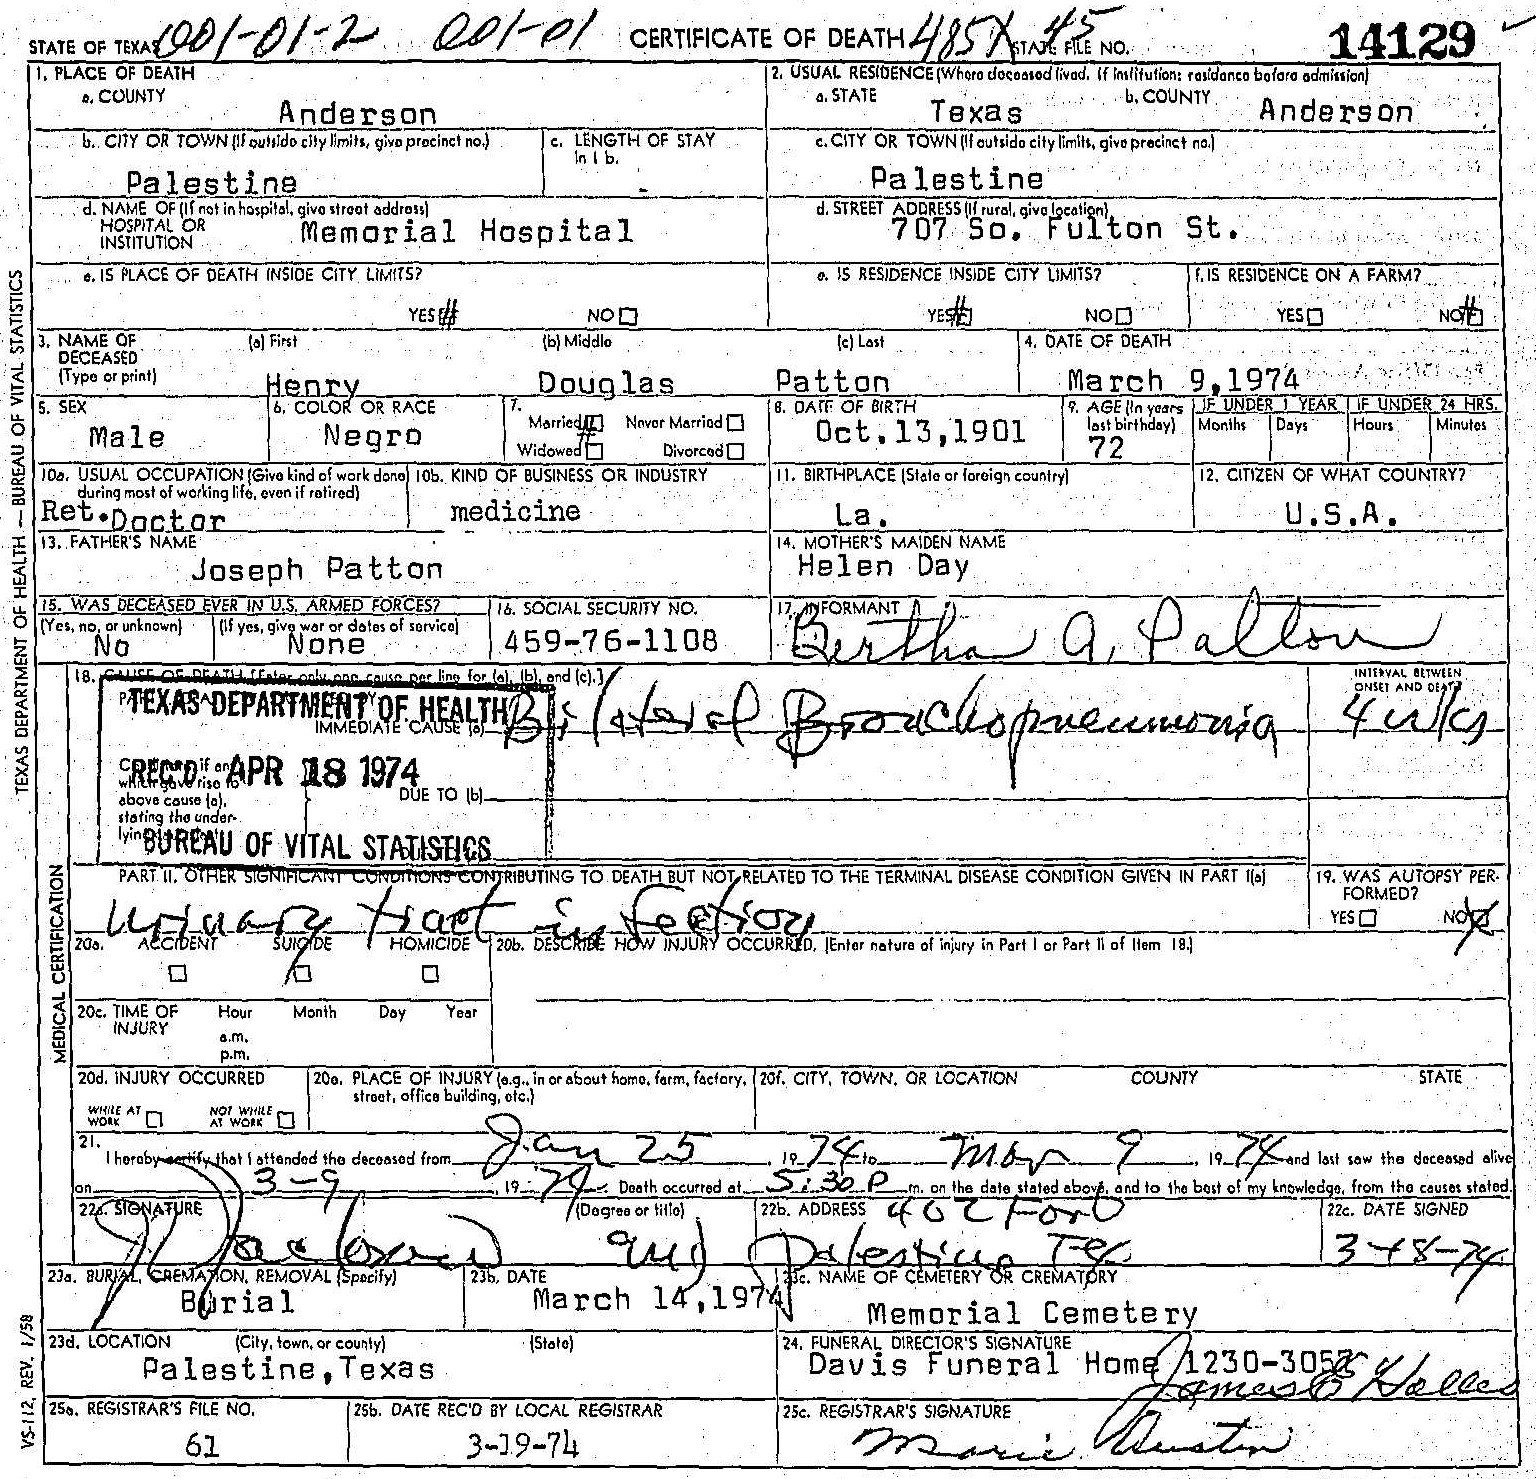 STATE OF TEXAS 001-01-2 001-01 CERTIFICATE OF DEATH 485X 45 STATE FILE NO. 14129
1. PLACE OF DEATH
a. COUNTY
Anderson
2. USUAL RESIDENCE (Where deceased lived. If institution: residence before admission)
a. STATE Texas b. COUNTY Anderson
b. CITY OR TOWN (If outside city limits, give precinct no.)
Palestine
c. LENGTH OF STAY
in 1 b.
-
c. CITY OR TOWN (If outside city limits, give precinct no.)
Palestine
d. NAME OF (If not in hospital, give street address)
HOSPITAL OR
INSTITUTION Memorial Hospital
d. STREET ADDRESS (If rural, give location)
707 So. Fulton St.
e. IS PLACE OF DEATH INSIDE CITY LIMITS?
YES NO
e. IS RESIDENCE INSIDE CITY LIMITS?
YES NO
f. IS RESIDENCE ON A FARM?
YES NO
3. NAME OF
DECEASED
(Type or print)
(a) First (b) Middle (c) Last
Henry Douglas Patton
4. DATE OF DEATH
March 9,1974
5. SEX
Male
6. COLOR OR RACE
Negro
7.
Married Never Married
Widowed Divorced
8. DATE OF BIRTH
Oct.13,1901
9. AGE (In years
last birthday)
72
IF UNDER 1 YEAR
Months Days
IF UNDER 24 HRS.
Hours Minutes
10a. USUAL OCCUPATION (Give kind of work done
during most of working life, even if retired)
Ret. Doctor
10b. KIND OF BUSINESS OR INDUSTRY
medicine
11. BIRTHPLACE (State or foreign country)
La.
12. CITIZEN OF WHAT COUNTRY?
U.S.A.
13. FATHER'S NAME
Joseph Patton
14. MOTHER'S MAIDEN NAME
Helen Day
15. WAS DECEASED EVER IN U.S. ARMED FORCES?
(Yes, no, or unknown) (If yes, give war or dates of service)
No None
16. SOCIAL SECURITY NO.
459-76-1108
17. INFORMANT
Bertha A. Patton
18. CAUSE OF DEATH [Enter only one cause per line for (a), (b), and (c).]
TEXAS DEPARTMENT OF HEALTH
IMMEDIATE CAUSE (a) Bilateral Bronchopneumonia
INTERVAL BETWEEN
ONSET AND DEATH
4 wks
REC'D APR 18 1974
above cause (a),
stating the under-
DUE TO (b)
BUREAU OF VITAL STATISTICS
PART II. OTHER SIGNIFICANT CONDITIONS CONTRIBUTING TO DEATH BUT NOT RELATED TO THE TERMINAL DISEASE CONDITION GIVEN IN PART I(a)
Urinary tract infection
19. WAS AUTOPSY PER-
FORMED?
YES NO
20a. ACCIDENT SUICIDE HOMICIDE
20b. DESCRIBE HOW INJURY OCCURRED. (Enter nature of injury in Part I or Part II of Item 18.)
20c. TIME OF
INJURY
Hour Month Day Year
a.m.
p.m.
20d. INJURY OCCURRED
WHILE AT
WORK
NOT WHILE
AT WORK
20e. PLACE OF INJURY (e.g., in or about home, farm, factory,
street, office building, etc.)
20f. CITY, TOWN, OR LOCATION COUNTY STATE
21.
I hereby certify that I attended the deceased from Jan 25, 1974 to Mar 9, 1974 and last saw the deceased alive
on 3-9, 1974. Death occurred at 5:30 P m. on the date stated above, and to the best of my knowledge, from the causes stated.
22a. SIGNATURE (Degree or title)
md
22b. ADDRESS 402
Palestine Tex
22c. DATE SIGNED
3-18-74
23a. BURIAL, CREMATION, REMOVAL (Specify)
Burial
23b. DATE
March 14,1974
23c. NAME OF CEMETERY OR CREMATORY
Memorial Cemetery
23d. LOCATION (City, town, or county) (State)
Palestine,Texas
24. FUNERAL DIRECTOR'S SIGNATURE
Davis Funeral Home
James
25a. REGISTRAR'S FILE NO.
61
25b. DATE REC'D BY LOCAL REGISTRAR
3-19-74
25c. REGISTRAR'S SIGNATURE
Marie Austin
TEXAS DEPARTMENT OF HEALTH — BUREAU OF VITAL STATISTICS
MEDICAL CERTIFICATION
VS-112, REV. 1/58